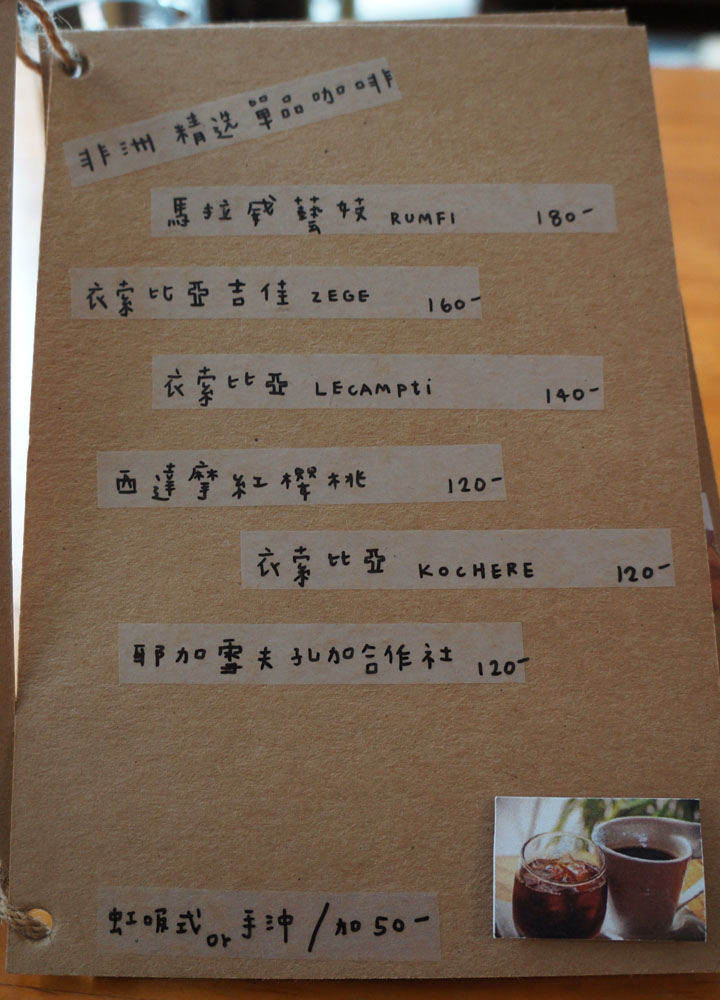 非洲 精选 單品咖啡
馬拉錢藝妓 RUMFI 180-
衣索比亞吉佳 ZEGE 160-
衣索比亞 LECAMPti 140-
西達摩紅櫻桃 120-
衣索比亞 KOCHERE 120-
耶加雪夫孔加合作社 120-
虹吸式 or 手沖 / 加 50-